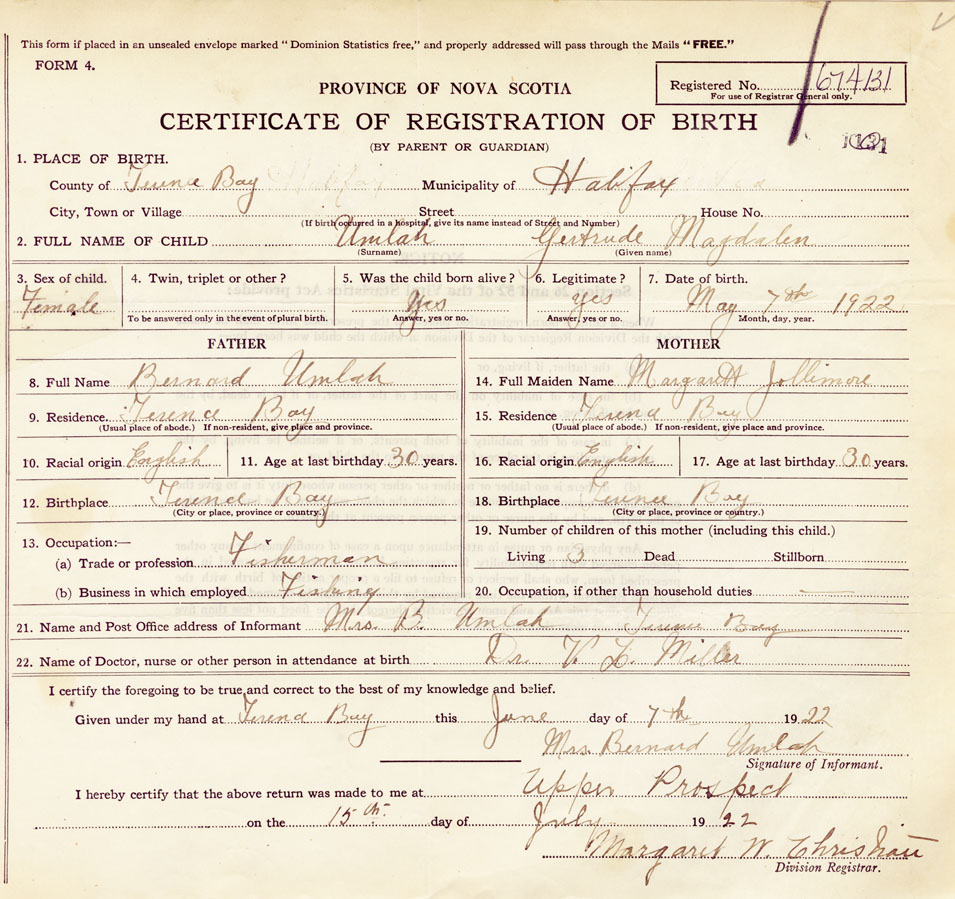 This form if placed in an unsealed envelope marked "Dominion Statistics free," and properly addressed will pass through the Mails "FREE."
FORM 4.
PROVINCE OF NOVA SCOTIA
Registered No. 674131
For use of Registrar General only.
CERTIFICATE OF REGISTRATION OF BIRTH
(BY PARENT OR GUARDIAN)
1. PLACE OF BIRTH.
County of Terence Bay Municipality of Halifax
City, Town or Village Street House No.
(If birth occurred in a hospital, give its name instead of Street and Number)
2. FULL NAME OF CHILD Umlah Gertrude Magdalen
(Surname) (Given name)
3. Sex of child. 4. Twin, triplet or other? 5. Was the child born alive? 6. Legitimate? 7. Date of birth.
Female Yes Yes May 7th 1922
To be answered only in the event of plural birth. Answer, yes or no. Answer, yes or no. Month, day, year.
FATHER MOTHER
8. Full Name Bernard Umlah 14. Full Maiden Name Margaret Jollimore
9. Residence. Terence Bay 15. Residence Terence Bay
(Usual place of abode.) If non-resident, give place and province. (Usual place of abode.) If non-resident, give place and province.
10. Racial origin English 11. Age at last birthday 30 years. 16. Racial origin English 17. Age at last birthday 30 years.
12. Birthplace Terence Bay 18. Birthplace Terence Bay
(City or place, province or country.) (City or place, province or country.)
13. Occupation:— 19. Number of children of this mother (including this child.)
(a) Trade or profession Fisherman Living 3 Dead Stillborn
(b) Business in which employed Fishing 20. Occupation, if other than household duties —
21. Name and Post Office address of Informant Mrs. B. Umlah Terence Bay
22. Name of Doctor, nurse or other person in attendance at birth Dr. V. L. Miller
I certify the foregoing to be true and correct to the best of my knowledge and belief.
Given under my hand at Terence Bay this June day of 7th 1922
Mrs. Bernard Umlah
Signature of Informant.
I hereby certify that the above return was made to me at Upper Prospect
on the 15th day of July 1922
Margaret W. Christian
Division Registrar.